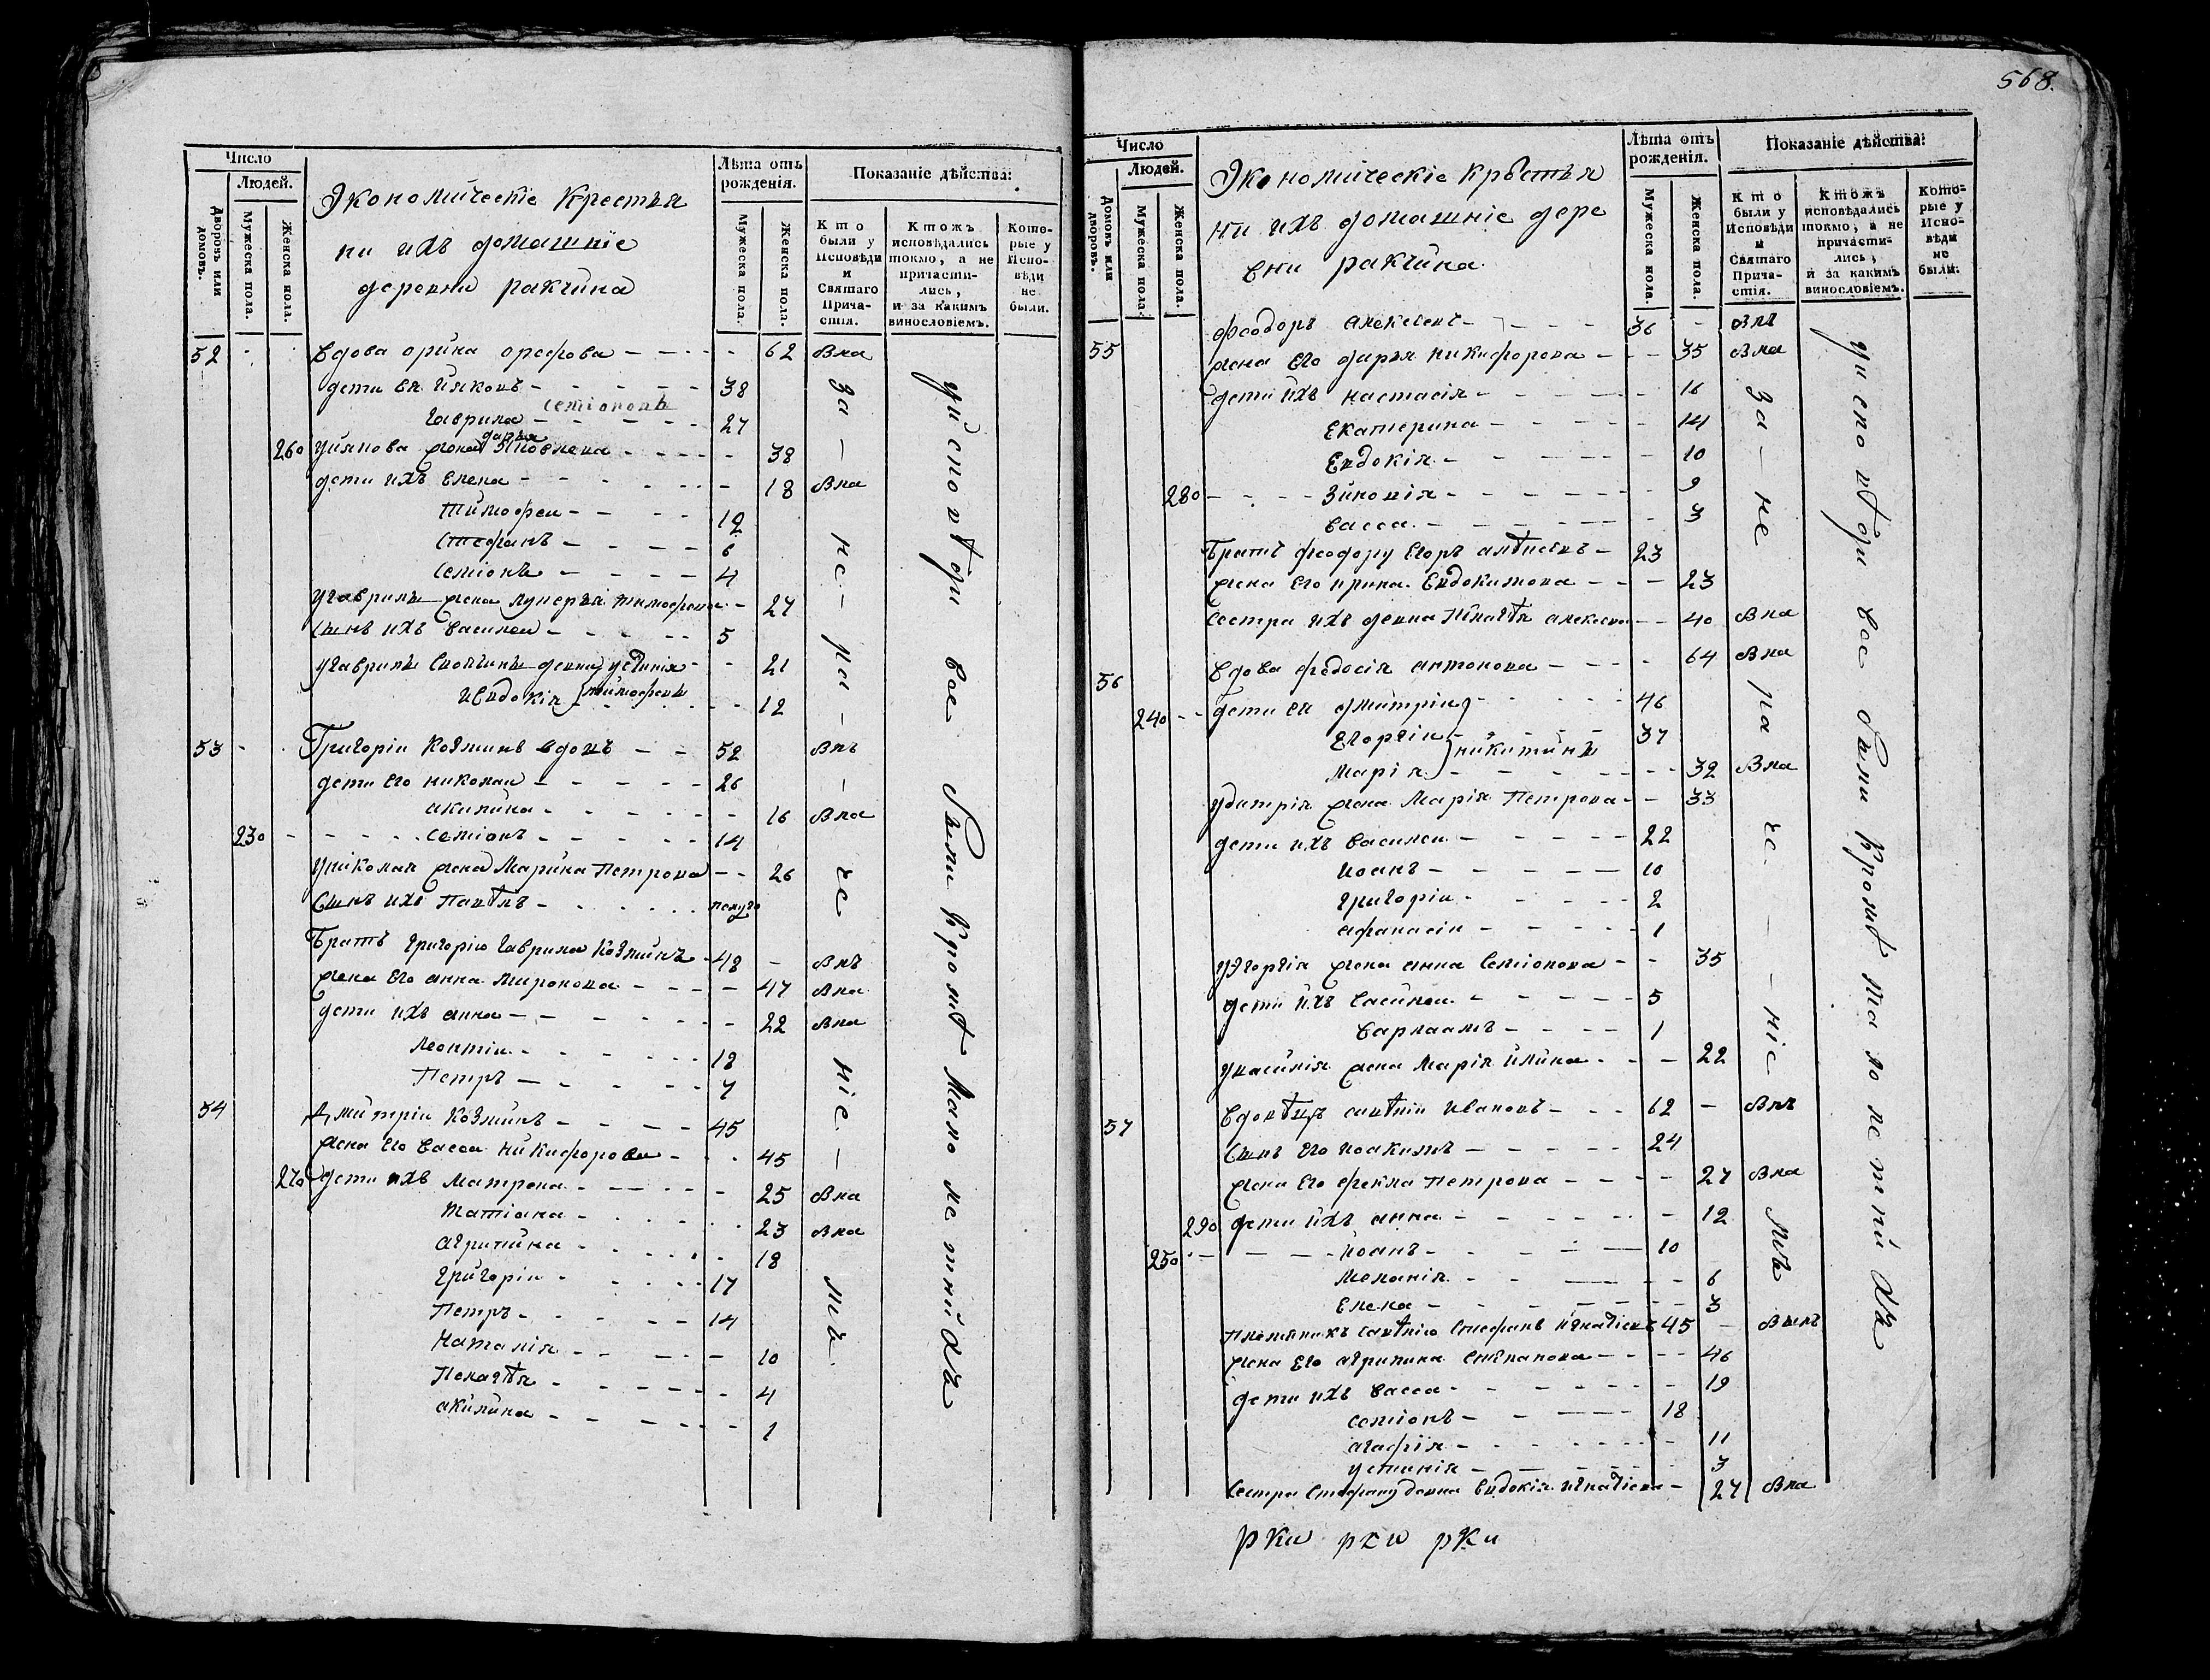 568.
Число
Людей.
Дворовъ или домовъ.
Мужеска пола.
Женска пола.
Экономическіе крестья
ни ихъ домашніе
деревни ракчина
Лѣта отъ рожденія.
Мужеска пола.
Женска пола.
Показаніе дѣйства:
Кто были у Исповѣди и Святаго Прича-стія.
Ктожъ исповѣдались токмо, а не причасти-лись, и за какимъ винословіемъ.
Кото-рые у Испо-вѣди не были.
52 вдова орина орефова 62 вла
дети ея Ияковъ 38
семіоновы
гаврила 27
260 дарья 38
дети ихъ елена 18 вла
тимофеи 12
стефанъ 6
семіонъ 4
угаврилы жена лукерья тимофеева 27
сынъ ихъ василеи 5
21
иевдокія 12
53 Григоріи козминъ вдовъ 52 влъ
дети его николаи 26
акилина 16 вла
230 семіонъ 14
униколая жена Марина Петрова 26
сынъ ихъ Павѣлъ полуго
Братъ григорію гаврила козминъ 48 влъ
жена его анна миронова 47 вла
дети ихъ анна 22 вла
Леонтіи 18
Петръ 7
54 Дмитріи козминъ 45
жена его васса никифорова 45
270 дети ихъ матрона 25 вла
татіана 23 вла
агрипина 18
григоріи 17
Петръ 14
Наталія 10
Пелагѣя 4
акилина 1
за - не - ра - че - ніе - мъ
уисповѣди все были кромѣ малолетнихъ
Число
Людей.
Домовъ или дворовъ.
Мужеска пола.
Женска пола.
Экономическіе крѣстья
ни ихъ домашніе дере
вни ракчина
Лѣта отъ рожденія.
Мужеска пола.
Женска пола.
Показаніе дѣйства:
Кто были у Исповѣди и Святаго Прича-стія.
Ктожъ исповѣдались токмо, а не причасти-лись, и за какимъ винословіемъ.
Кото-рые у Испо-вѣди не были.
55 феодоръ алексеевъ 36 влъ
жена его дарья никифорова 35 вла
дети ихъ настасія 16
екатерина 14
евдокія 10
280 зиновія 9
васса 3
Братъ феодору егоръ 23
жена его ирина евдокимова 23
сестра ихъ девка Пелагѣя алексеева 40 вла
56 вдова федосія антонова 64 вла
240 дети ея дмитріи 46
егоргіи 37
никитины
марія 32 вла
жена Марія Петрова 33
дети ихъ василеи 22
иоанъ 10
григоріи 2
афанасіи 1
уегоргія жена анна семіонова 35
дети ихъ василеи 5
варлаамъ 1
увасилія жена Марія илина 22
57 вдовѣцъ савѣліи ивановъ 62 влъ
сынъ его иоакимъ 24
жена его фекла петрова 27 вла
290 дети ихъ анна 12
250 иоанъ 10
меланія 6
елена 3
племяникъ савѣлію стефанъ игнатіевъ 45 былъ
жена его агрипина степанова 46
дети ихъ васса 19
семіонъ 18
агафія 11
устинія 3
сестра стефану девка евдокія игнатіева 27 вла
за - не ра че - ніе мъ
уисповѣди все были кромѣ малолетнихъ
рки рки рки